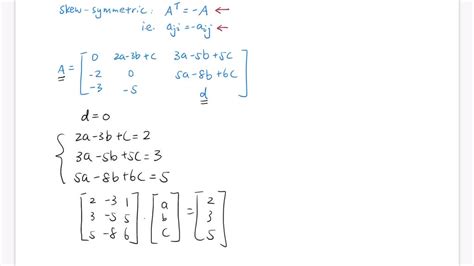 skew-symmetric: Aᵀ = -A ←
ie. aji = -aij ←
A = [ 0 2a-3b+c 3a-5b+5c
-2 0 5a-8b+6c
-3 -5 d ]
d = 0
{ 2a-3b+c = 2
3a-5b+5c = 3
5a-8b+6c = 5
[ 2 -3 1 ] · [ a ] = [ 2 ]
[ 3 -5 5 ] [ b ] [ 3 ]
[ 5 -8 6 ] [ c ] [ 5 ]